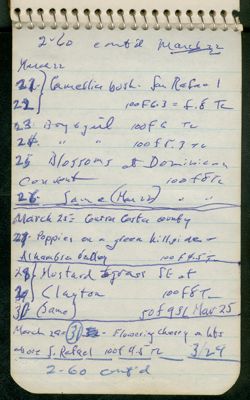 2-60 cont'd March 22
March 22
21 } Camellia bush. San Rafael
22 } 100 f 6.3 = f.8 TL
23 Boy & girl 100 f 6 TL
24 " " 100 f 5.3 TL
25 Blossoms at Dominican
Convent 100 f 8 TL
26 Same (Mar 22) " "
March 25 = Contra Costa County
27 Poppies on a green hillside -
Alhambra Valley 100 f 4.5 TL
28 Mustard & grass SE of
29 Clayton 100 f 8 TL
30 (Same) 50 f 9.5 Mar 25
March 29 = (31) Flowering cherry on lots
S. Rafael 100 f 9.4 TL 3/29
2-60 cont'd